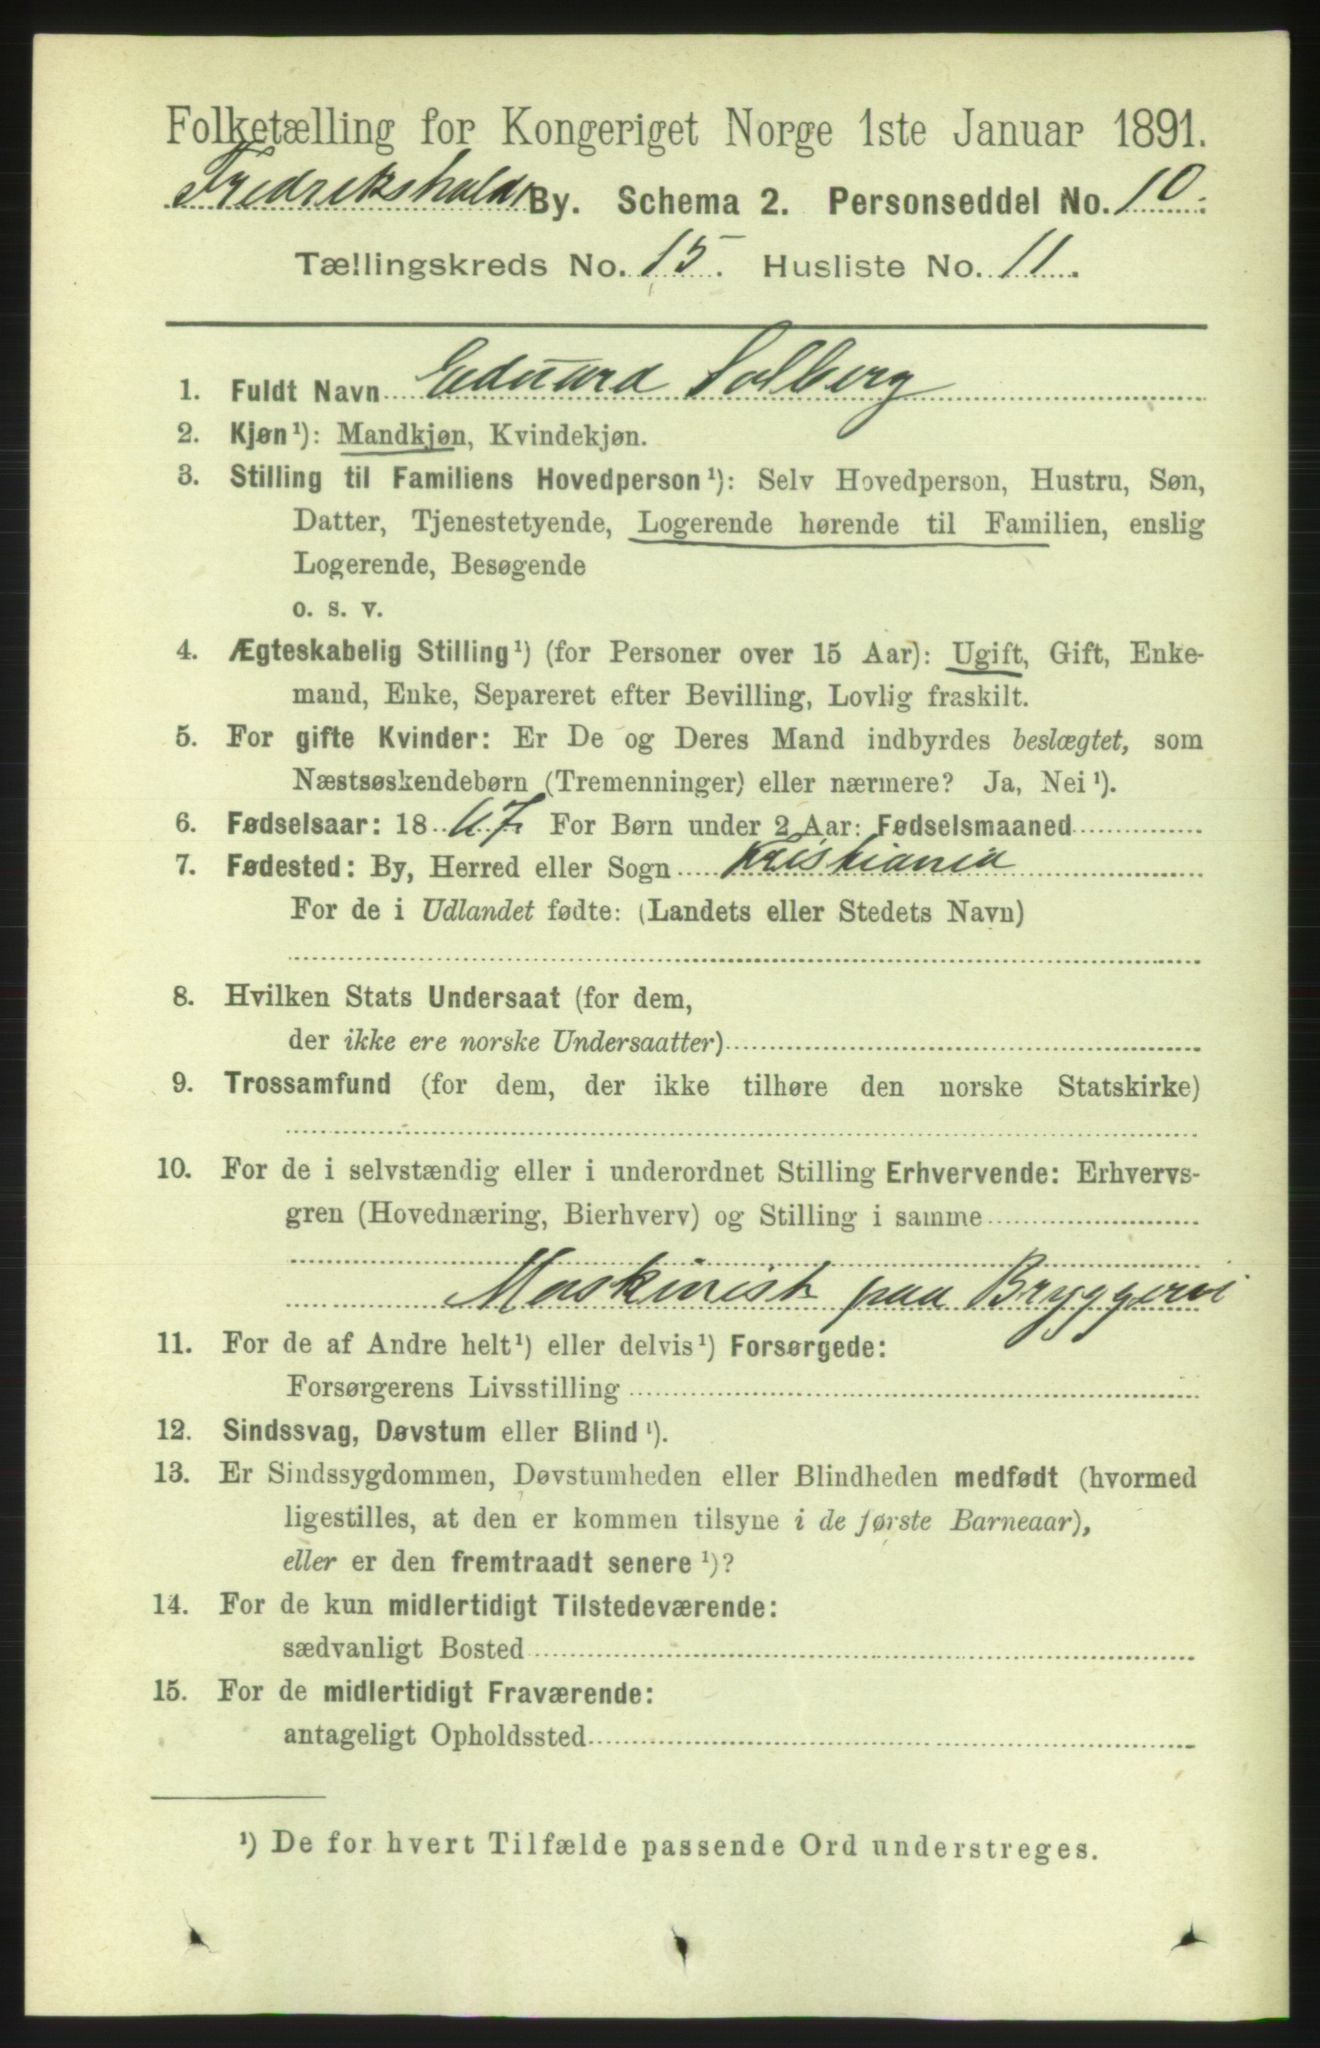 Folketælling for Kongeriget Norge 1ste Januar 1891.
Fredrikshalds By. Schema 2. Personseddel No. 10.
Tællingskreds No. 15. Husliste No. 11.
1. Fuldt Navn Eduard Solberg
2. Kjøn¹): Mandkjøn, Kvindekjøn.
3. Stilling til Familiens Hovedperson¹): Selv Hovedperson, Hustru, Søn,
Datter, Tjenestetyende, Logerende hørende til Familien, enslig
Logerende, Besøgende
o. s. v.
4. Ægteskabelig Stilling¹) (for Personer over 15 Aar): Ugift, Gift, Enke-
mand, Enke, Separeret efter Bevilling, Lovlig fraskilt.
5. For gifte Kvinder: Er De og Deres Mand indbyrdes beslægtet, som
Næstsøskendebørn (Tremenninger) eller nærmere? Ja, Nei¹).
6. Fødselsaar: 1867. For Børn under 2 Aar: Fødselsmaaned
7. Fødested: By, Herred eller Sogn Kristiania
For de i Udlandet fødte: (Landets eller Stedets Navn)
8. Hvilken Stats Undersaat (for dem,
der ikke ere norske Undersaatter)
9. Trossamfund (for dem, der ikke tilhøre den norske Statskirke)
10. For de i selvstændig eller i underordnet Stilling Erhvervende: Erhvervs-
gren (Hovednæring, Bierhverv) og Stilling i samme
Maskinist paa Bryggeri
11. For de af Andre helt¹) eller delvis¹) Forsørgede:
Forsørgerens Livsstilling
12. Sindssvag, Døvstum eller Blind¹).
13. Er Sindssygdommen, Døvstumheden eller Blindheden medfødt (hvormed
ligestilles, at den er kommen tilsyne i de første Barneaar),
eller er den fremtraadt senere¹)?
14. For de kun midlertidigt Tilstedeværende:
sædvanligt Bosted
15. For de midlertidigt Fraværende:
antageligt Opholdssted
¹) De for hvert Tilfælde passende Ord understreges.